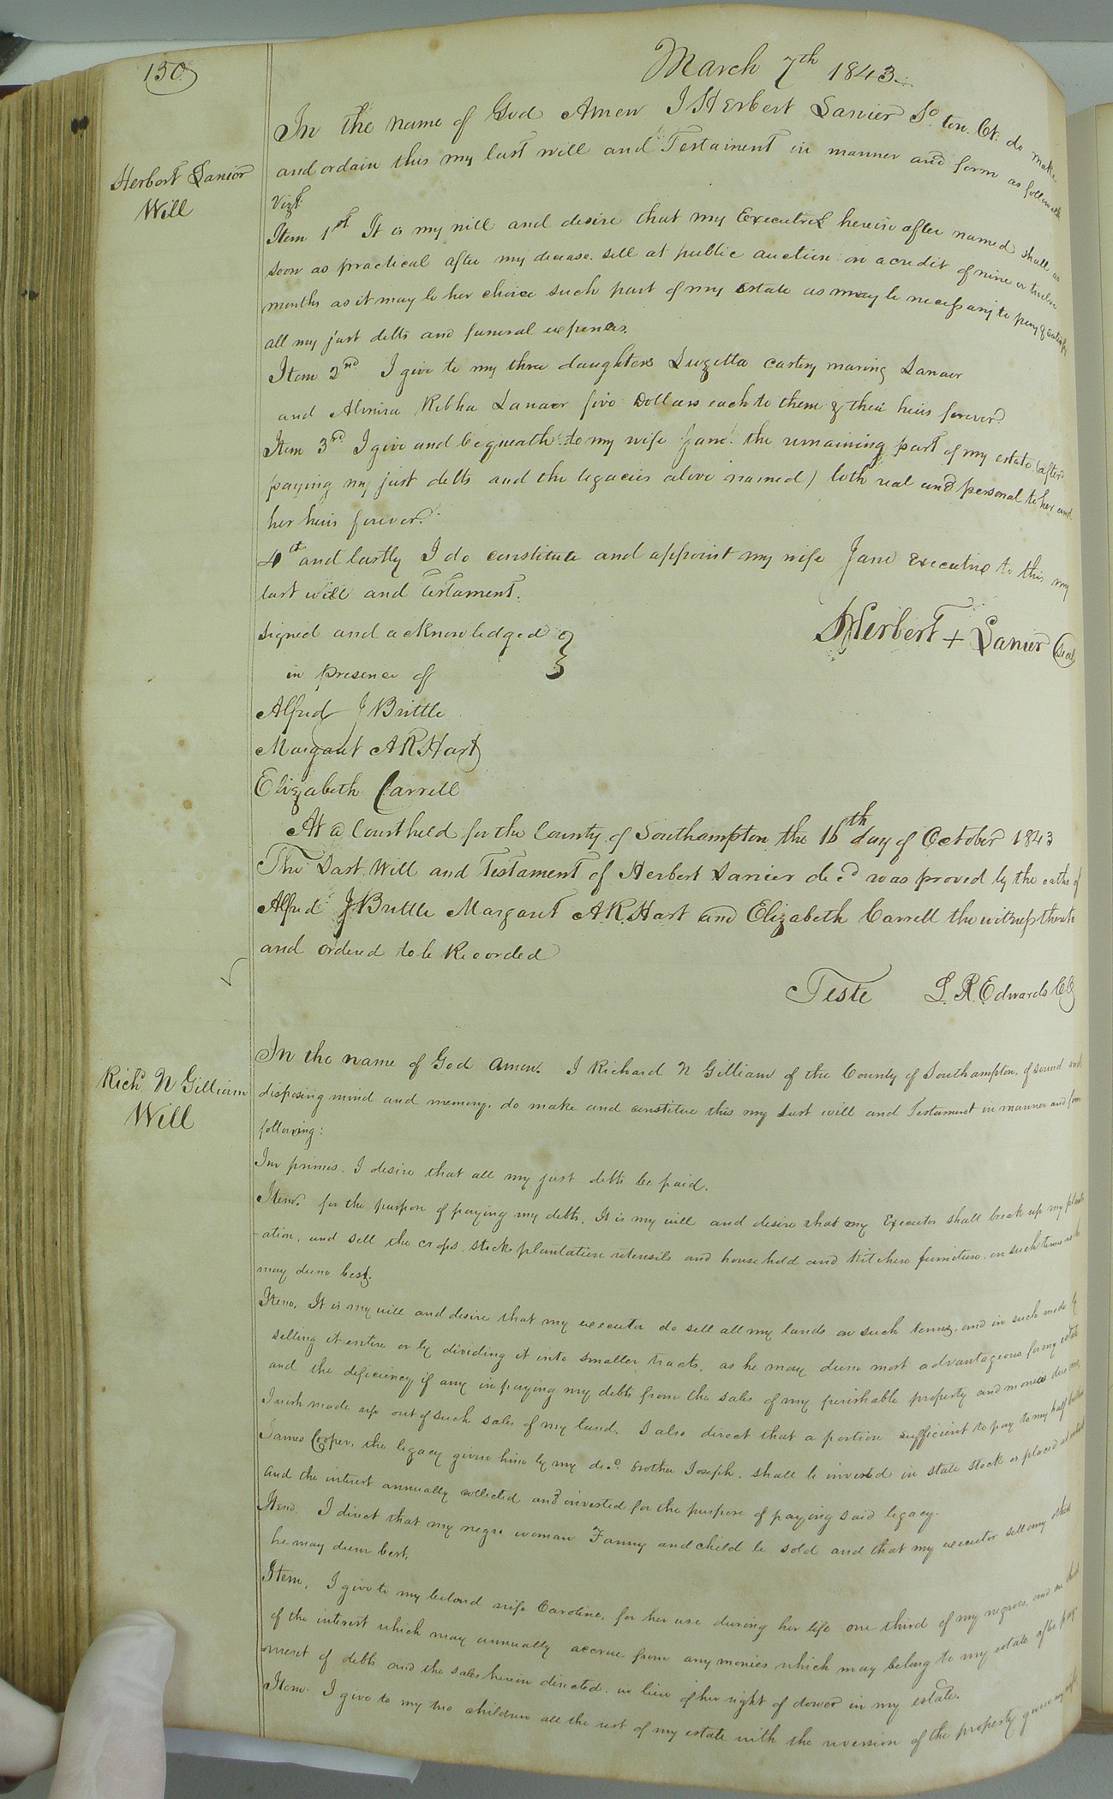 130
March 7th 1843
In the name of God Amen I Herbert Lanier So. ton. Ct. do make
Herbert Lanier
Will
and ordain this my last will and Testament in manner and form as followeth
Vizt.
Item 1st It is my will and desire that my Executrix herein after named shall as
soon as practical after my decease sell at public auction on a credit of nine or twelve
months as it may be her choice such part of my estate as may be necessary to pay & satisfy
all my just debts and funeral expences.
Item 2nd I give to my three daughters Luzetta Lanier
and Almira Lanaer five Dollars each to them & their heirs forever
Item 3rd I give and bequeath to my wife Jane the remaining part of my estate (after
paying my just debts and the legacies above named) both real and personal to her and
her heirs forever.
4th and lastly I do constitute and appoint my wife Jane Executrix to this my
last will and testament.
Signed and acknowledged
in presence of
Herbert + Lanier Seal
Alfred J Brittle
Margaret A R Hart
Elizabeth Carrell
At a Court held for the County of Southampton the 16th day of October 1843
This Last Will and Testament of Herbert Lanier decd was proved by the oaths of
Alfred J Brittle Margaret A R Hart and Elizabeth Carrell the witness thereto
and ordered to be Recorded
Teste L. R. Edwards CC
Richd N Gilliam
Will
In the name of God Amen. I Richard N Gilliam of the County of Southampton, of sound and
disposing mind and memory, do make and constitute this my last will and Testament in manner and form
following:
Im primis. I desire that all my just debts be paid.
Item. for the purpose of paying my debts, It is my will and desire that my Executor shall break up my plant
ation, and sell the crops, stock, plantation utensils and household and kitchen furniture, on such terms as he
may deem best.
Item. It is my will and desire that my executor do sell all my lands on such terms, and in such mode by
selling it entire or by dividing it into smaller tracts, as he may deem most advantageous for my estate
and the deficiency if any in paying my debts from the sales of my perishable property and monies due me,
I wish made up out of such sales of my land. I also direct that a portion sufficient to pay to my half brother
James Cooper, the legacy given him by my decd. brother Joseph, shall be invested in state stock or placed at interest
and the interest annually collected and invested for the purpose of paying said legacy.
Item. I direct that my negro woman Fanny and child be sold and that my executor sell any other
he may deem best.
Item. I give to my beloved wife Caroline, for her use during her life one third of my negroes, and one third
of the interest which may annually accrue from any monies which may belong to my estate after pay-
ment of debts and the sales herein directed, in lieu of her right of dower in my estate.
Item. I give to my two children all the rest of my estate with the reversion of the property given my wife